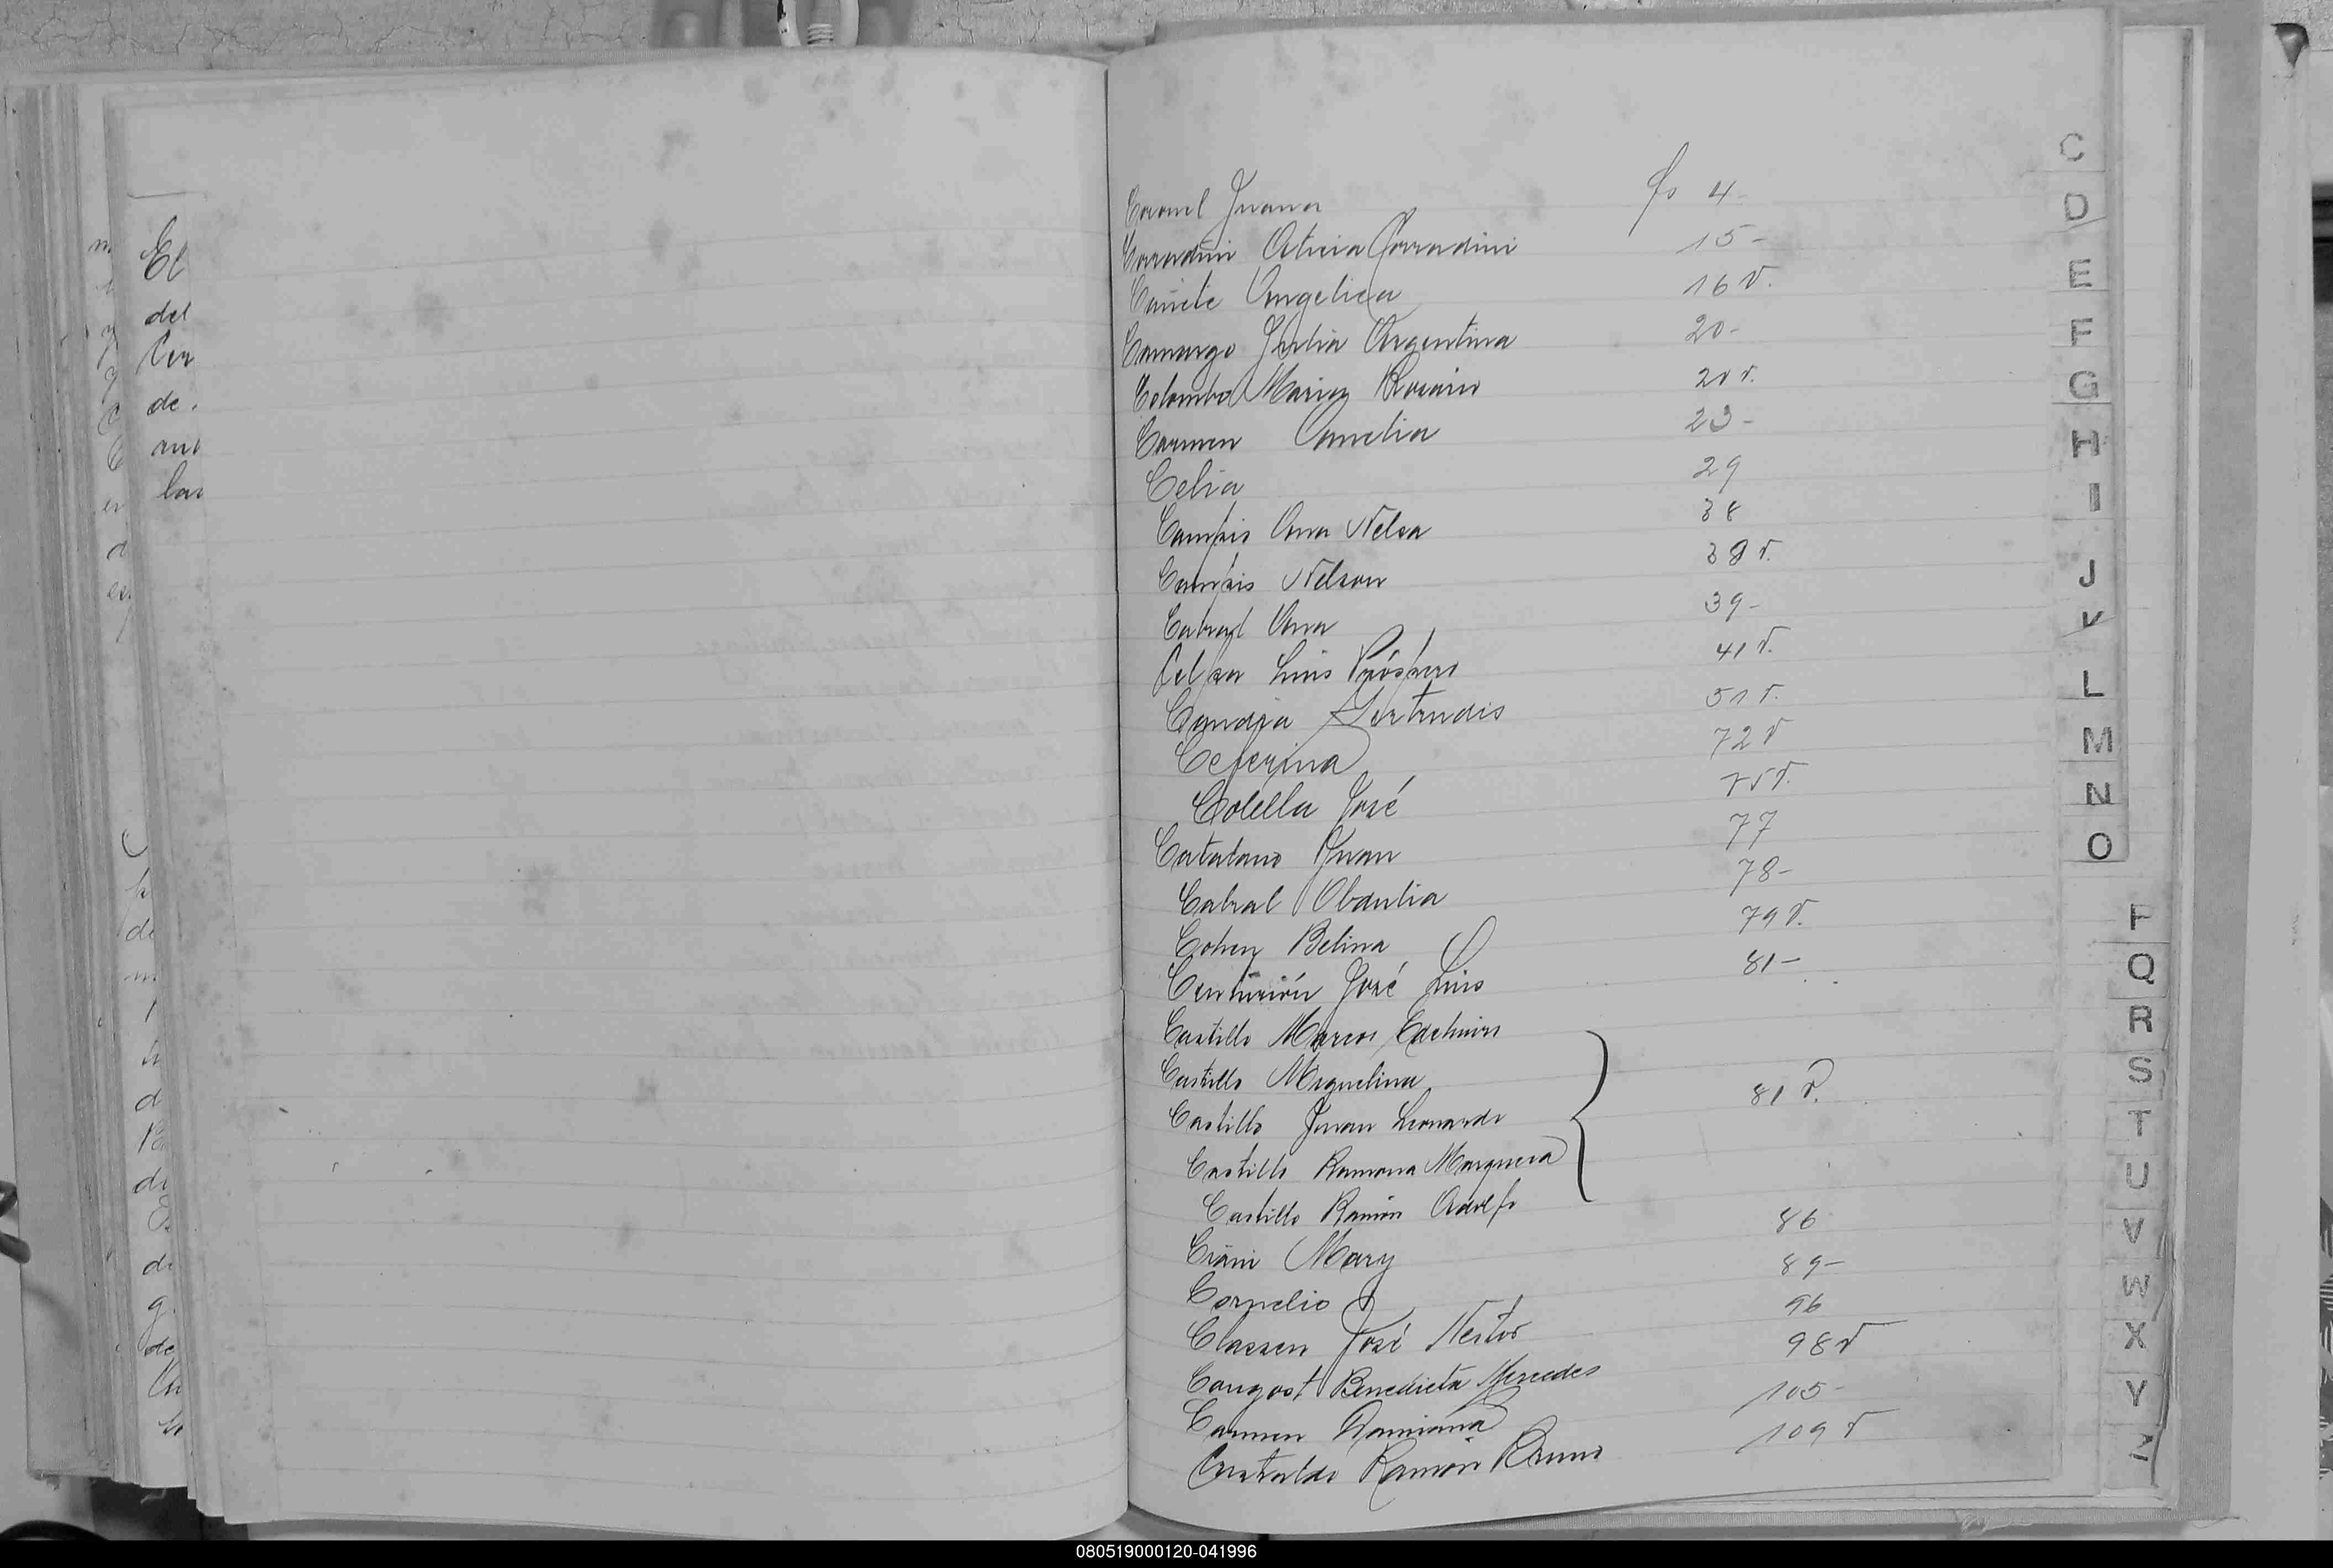 El
del
de
Coronel Juana fs 4-
Corradini Alicia Corradini 15-
Cañete Angelica 16 v.
Camargo Julia Argentina 20-
Colombo Maria Rosario 20 v.
Carmen Amelia 23-
Celia 29
Campis Ana Nelsa 38
Campis Nelson 38 v.
Cabral Ana 39-
Luis Próspero 41 v.
Candia Gertrudis 51 v.
Ceferina 72 v
Colella José 75 v.
Catalano Juan 77
Cabral Obdulia 78-
Cohen Belina 79 v.
Centurión José Luis 81-
Castillo Marcos Edelmiro
Castillo Miguelina
Castillo Juan Leonardo 81 v.
Castillo Ramona Marquesa
Castillo Ramón Adolfo
Mary 86
Cornelio 89-
Classen José Nestor 96
Congost Benedicta Mercedes 98 v
Carmen Damiana 105-
Cristaldo Ramón Bruno 109 v
C
D
E
F
G
H
I
J
K
L
M
N
O
P
Q
R
S
T
U
V
W
X
Y
Z
080519000120-041996